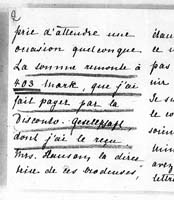 prie d'attendre une
occasion quelconque.
La somme remonte à
403 mark, que j'ai
fait payer par la
Disconto-Gesellschaft
dont j'ai le reçu
Mrs. Hanson, la direc-
trice de ces brodeuses,
étau
le
pas
nir
Je su
le co
soien
mi
avez
lettre